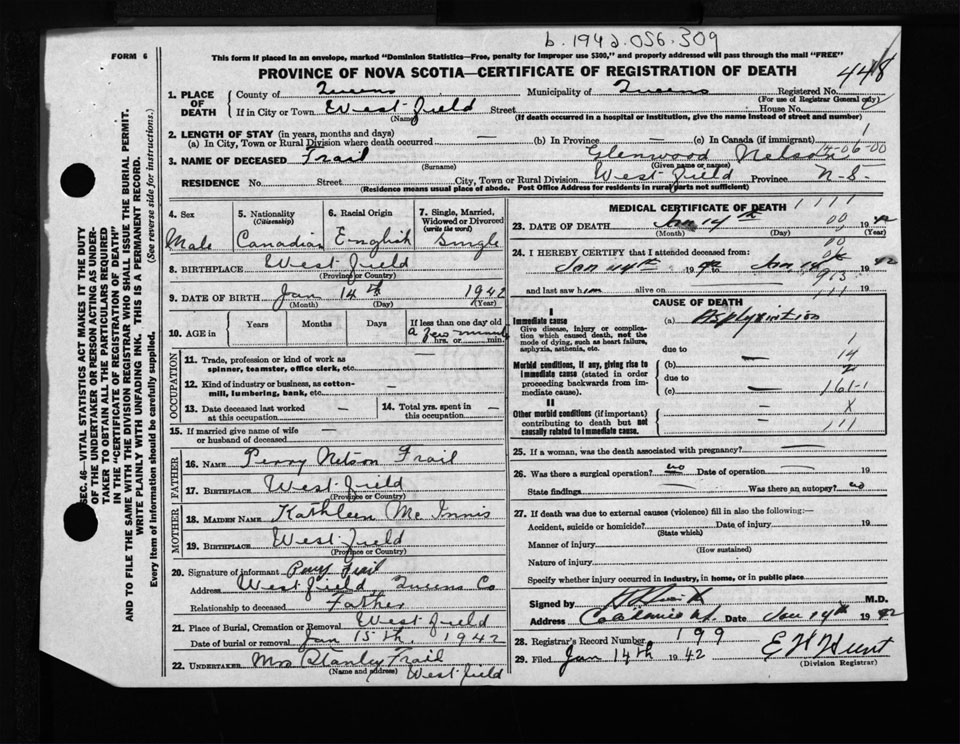 b. 1942.056.309
FORM 6
This form if placed in an envelope, marked "Dominion Statistics—Free, penalty for improper use $300," and properly addressed will pass through the mail "FREE"
PROVINCE OF NOVA SCOTIA—CERTIFICATE OF REGISTRATION OF DEATH
448
1. PLACE OF DEATH
County of Queens Municipality of Queens Registered No.
(For use of Registrar General only)
If in City or Town West-field Street House No.
(Name) (If death occurred in a hospital or institution, give the name instead of street and number)
2. LENGTH OF STAY (in years, months and days)
(a) In City, Town or Rural Division where death occurred — (b) In Province — (c) In Canada (if immigrant) 1
3. NAME OF DECEASED Frail Glenwood Nelson 14-06-00
(Surname) (Given name or names)
RESIDENCE No. Street City, Town or Rural Division West-field Province N-S-
(Residence means usual place of abode. Post Office Address for residents in rural parts not sufficient)
4. Sex Male
5. Nationality (Citizenship) Canadian
6. Racial Origin English
7. Single, Married, Widowed or Divorced (write the word) Single
8. BIRTHPLACE West-field
(Province or Country)
9. DATE OF BIRTH Jan 14th 1942
(Month) (Day) (Year)
10. AGE in Years Months Days If less than one day old
a few hrs. or min.
OCCUPATION
11. Trade, profession or kind of work as spinner, teamster, office clerk, etc. —
12. Kind of industry or business, as cotton-mill, lumbering, bank, etc. —
13. Date deceased last worked at this occupation —
14. Total yrs. spent in this occupation —
15. If married give name of wife or husband of deceased —
FATHER
16. NAME Perry Nelson Frail
17. BIRTHPLACE West-field
(Province or Country)
MOTHER
18. MAIDEN NAME Kathleen Mc Innis
19. BIRTHPLACE West-field
(Province or Country)
20. Signature of informant Perry Frail
Address West-field Queens Co
Relationship to deceased Father
21. Place of Burial, Cremation or Removal West-field
Date of burial or removal Jan 15th, 1942
22. UNDERTAKER Mrs Stanley Frail
(Name and address) West-field
MEDICAL CERTIFICATE OF DEATH 1111
23. DATE OF DEATH Jan 14th 00 1942
(Month) (Day) (Year)
24. I HEREBY CERTIFY that I attended deceased from: 00
Jan 14th 1942 to Jan 14 1942
913
and last saw him alive on 111 19
CAUSE OF DEATH
I
Immediate cause (a) Asphyxiation
Give disease, injury or complication which caused death, not the mode of dying, such as heart failure, asphyxia, asthenia, etc.
due to 1
14
Morbid conditions, if any, giving rise to immediate cause (stated in order proceeding backwards from immediate cause). (b) — 2
due to
(c) — 161-1
II
Other morbid conditions (if important) contributing to death but not causally related to immediate cause. — X
— 111
25. If a woman, was the death associated with pregnancy? —
26. Was there a surgical operation? no Date of operation — 19
State findings — Was there an autopsy? no
27. If death was due to external causes (violence) fill in also the following:—
Accident, suicide or homicide? Date of injury 19
(State which)
Manner of injury
(How sustained)
Nature of injury
Specify whether injury occurred in industry, in home, or in public place
Signed by M.D.
Address Date Jan 14th 1942
28. Registrar's Record Number 199
29. Filed Jan 14th 1942 E H Hunt
(Division Registrar)
SEC. 46—VITAL STATISTICS ACT MAKES IT THE DUTY
OF THE UNDERTAKER OR PERSON ACTING AS UNDER-
TAKER TO OBTAIN ALL THE PARTICULARS REQUIRED
IN THE "CERTIFICATE OF REGISTRATION OF DEATH"
AND TO FILE THE SAME WITH THE DIVISION REGISTRAR WHO SHALL ISSUE THE BURIAL PERMIT.
WRITE PLAINLY WITH UNFADING INK. THIS IS A PERMANENT RECORD.
Every item of information should be carefully supplied. (See reverse side for instructions.)